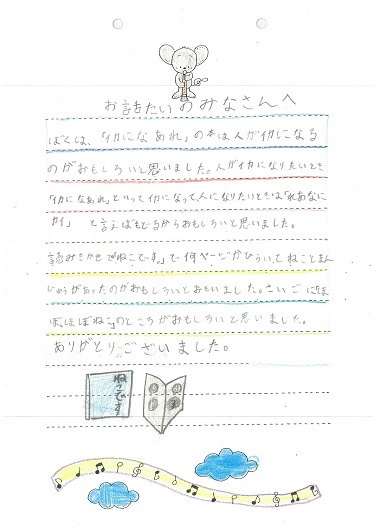 お話たいのみなさんへ
ぼくは、「イカになあれ」の本は人がイカになる
のがおもしろいと思いました。人がイカになりたいとき
「イカになあれ」といってイカになって、人になりたいときは「れあなに
カイ」と言えばもどるからおもしろいと思いました。
読みきかせで「ねこです。」で何ページかひらいてねことまん
じゅうがあったのがおもしろいとおもいました。さいごに「ほ
ぼほぼねこ」のところがおもしろいと思いました。
ありがとうございました。
ねこです